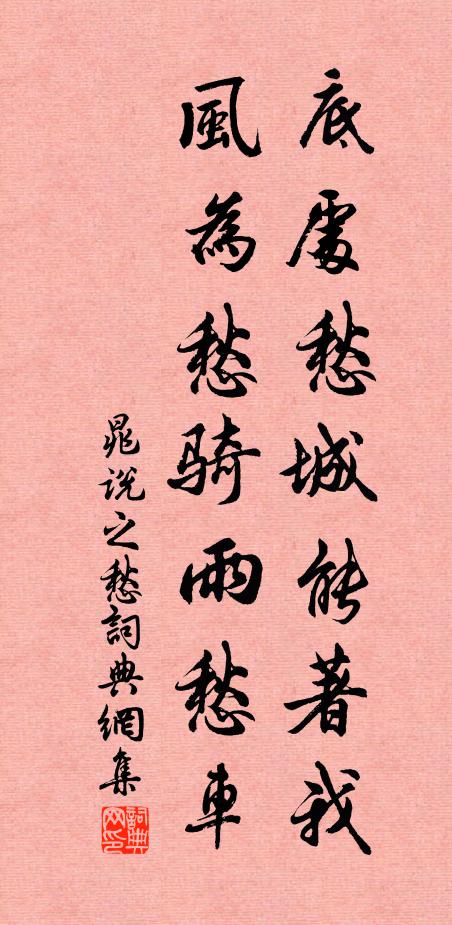 底處愁城能著我
風為愁騎雨愁車
晁說之愁詞典網集
詞典网印